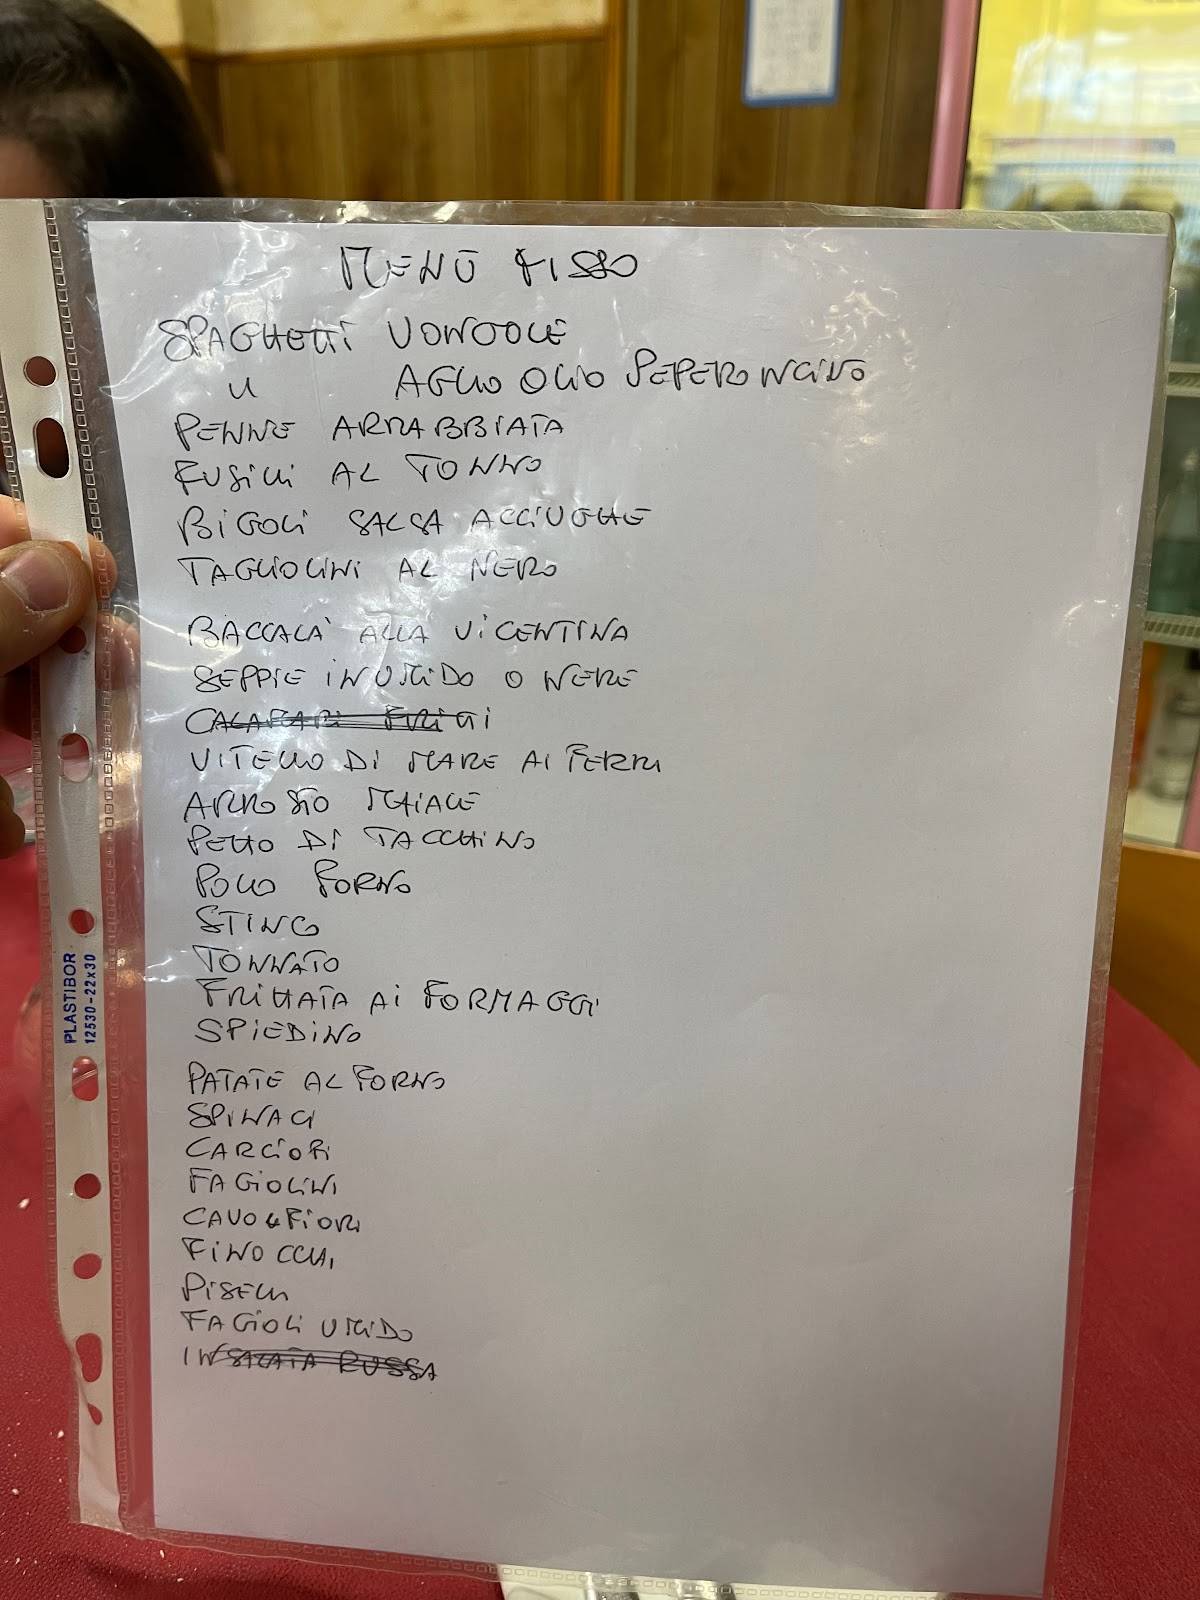 MENÙ FISSO
SPAGHETTI VONGOLE
" AGLIO OLIO PEPERONCINO
PENNE ARRABBIATA
FUSILLI AL TONNO
BIGOLI SALSA ACCIUGHE
TAGLIOLINI AL NERO
BACCALÀ ALLA VICENTINA
SEPPIE IN UMIDO O NERE
CALAMARI FRITTI
VITELLO DI MARE AI FERRI
ARROSTO MAIALE
PETTO DI TACCHINO
POLLO FORNO
STINCO
TONNATO
FRITTATA AI FORMAGGI
SPIEDINO
PATATE AL FORNO
SPINACI
CARCIOFI
FAGIOLINI
CAVOLFIORI
FINOCCHI
PISELLI
FAGIOLI UMIDO
INSALATA RUSSA
PLASTIBOR
12530-22x30